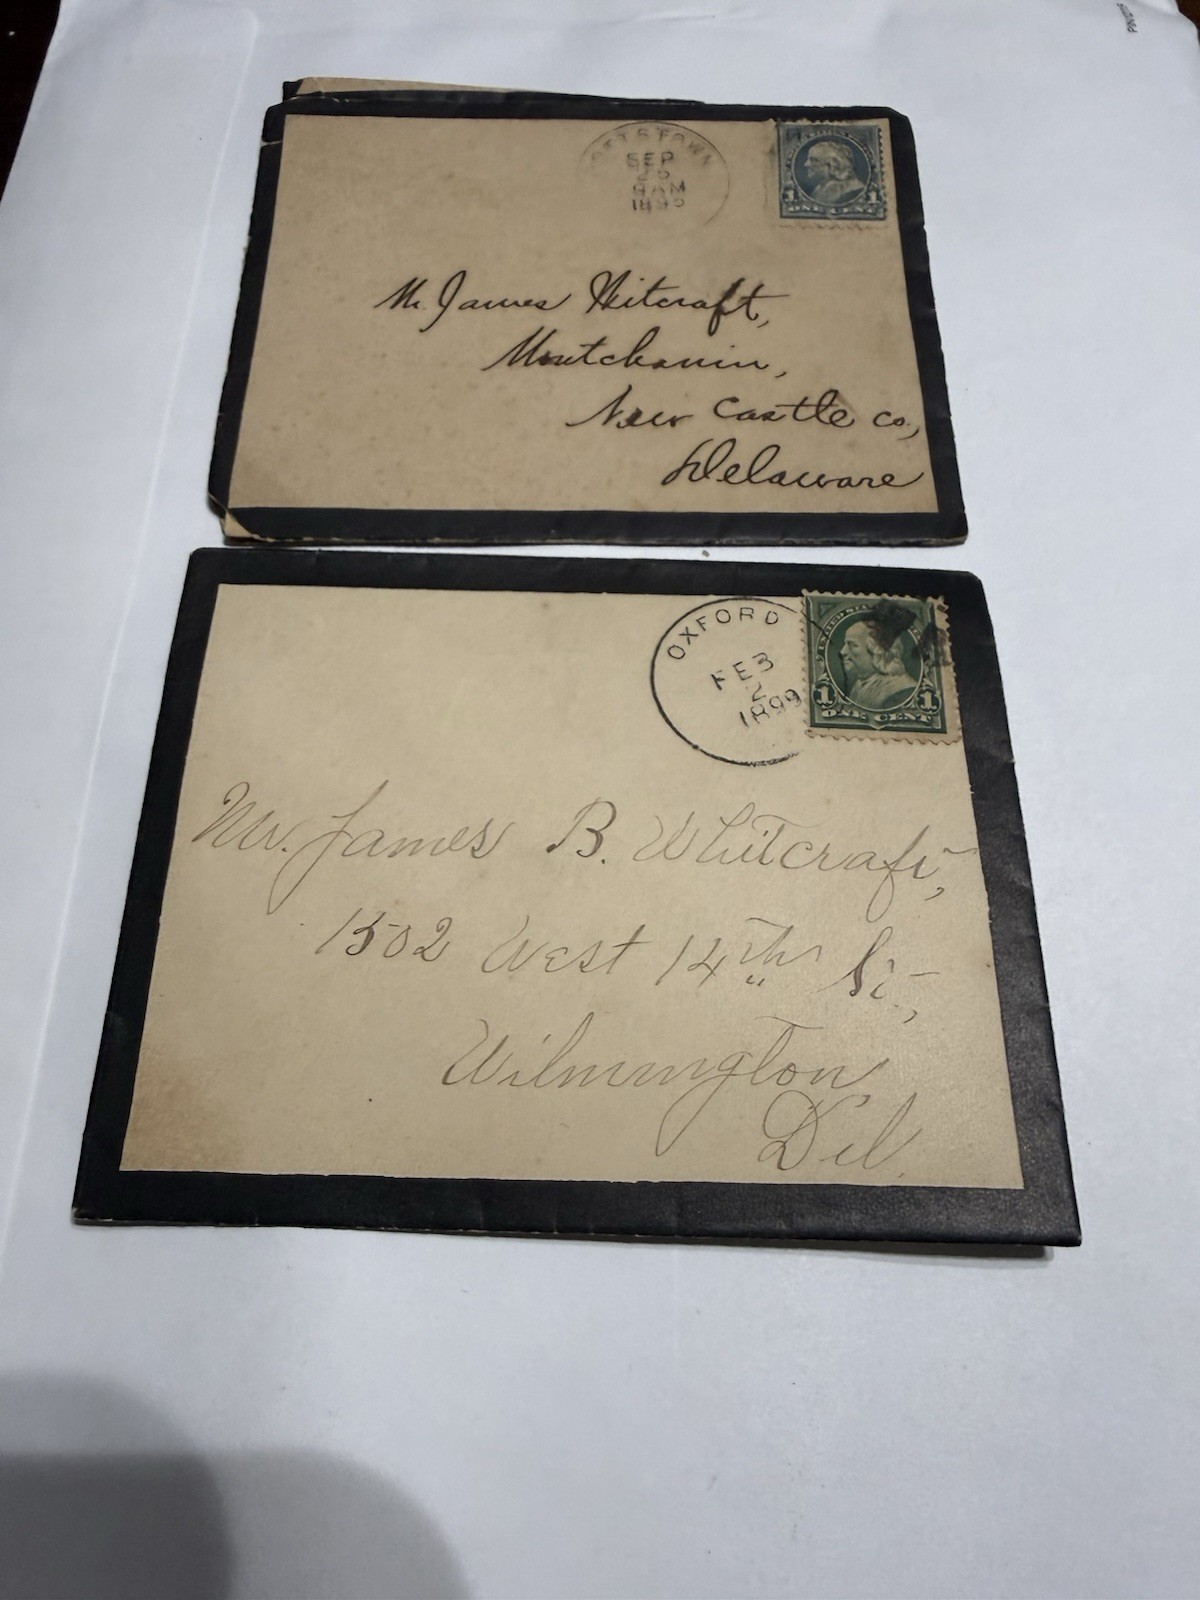 POTTSTOWN
SEP
25
9AM
1895
ONE CENT
1 1
Mr. James Witcraft,
Montchanin,
New Castle Co.,
Delaware
OXFORD
FEB
2
1899
UNITED STATES
1 1
ONE CENT
Mr. James B. Whitcraft,
1502 West 14th St.,
Wilmington
Del.